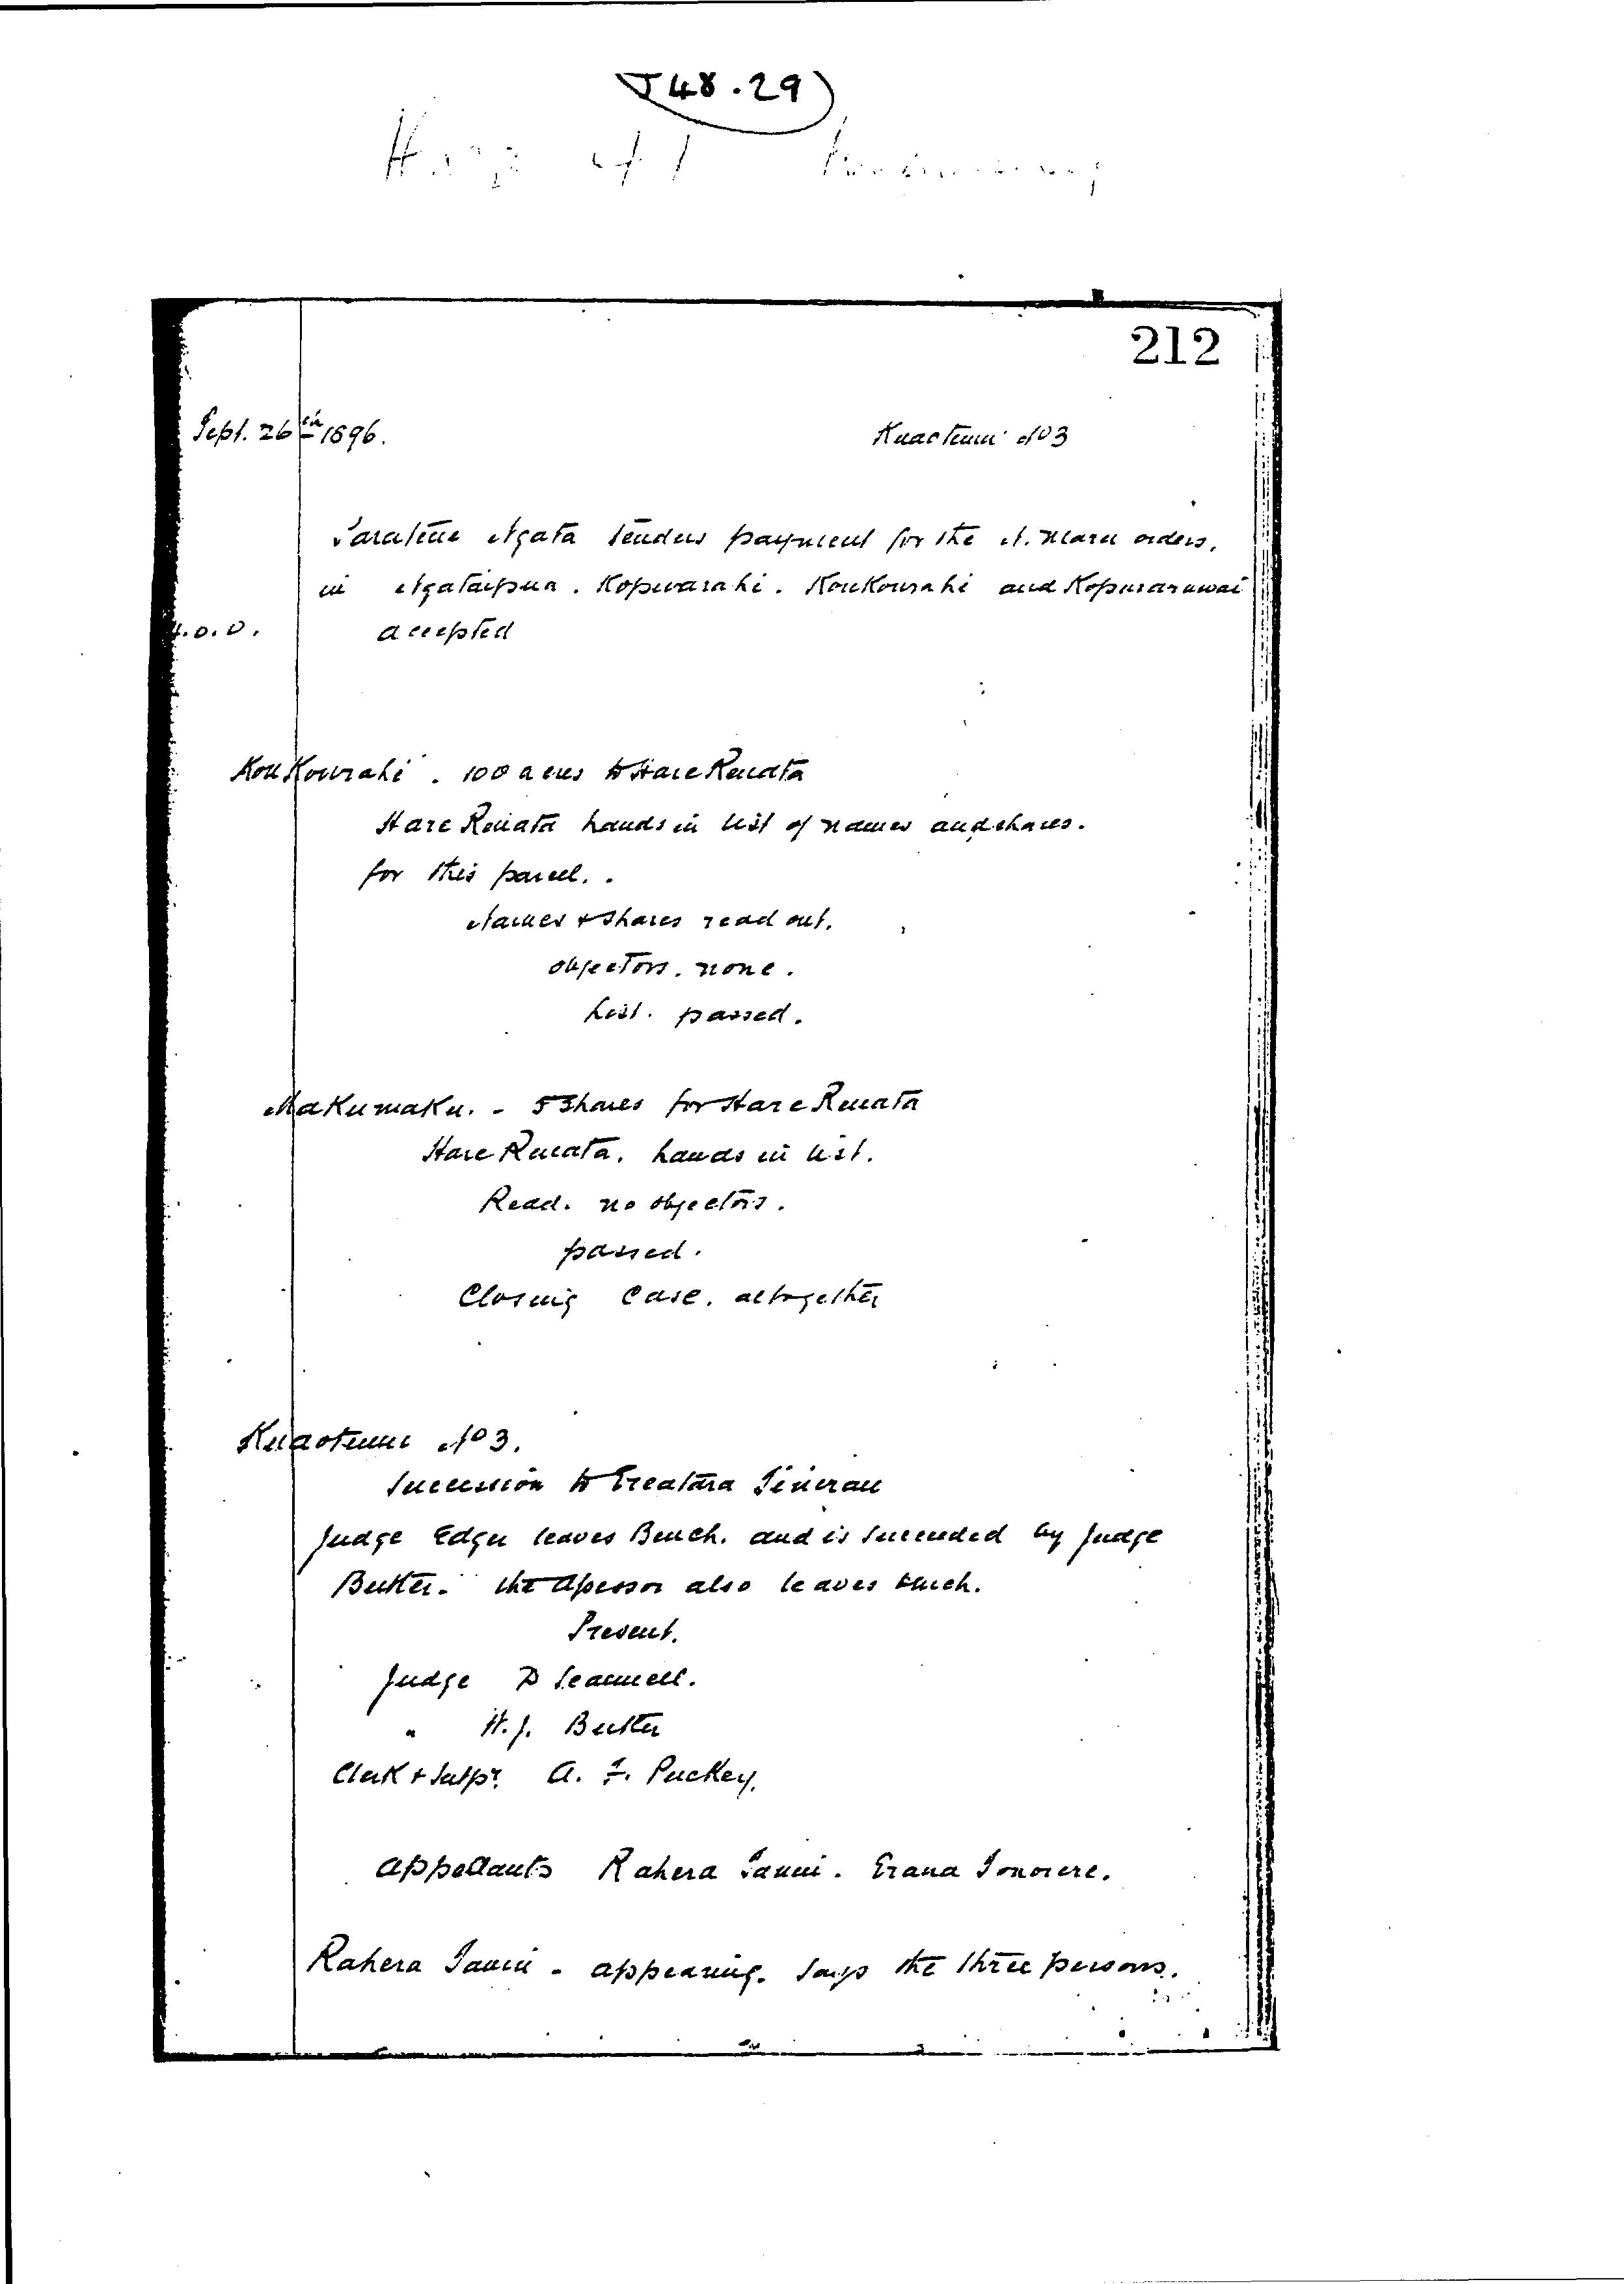 J48.29
212
Sept. 26th 1896. Kuaotunu No 3
Paratene Ngata tenders payment for the N. Maru orders,
in Ngataipua. Kopuarahi. Koukourahi and Kopuraruwai
4.0.0. accepted
Koukourahi. 100 acres to Hare Renata
Hare Renata hands in list of names and shares.
for this parcel..
Names + shares read out.
objectors. none.
List. passed.
Makumaku. - 5 Shares for Hare Renata
Hare Renata. hands in list.
Read. no objectors.
passed.
Closing Case. altogether
Kuaotunu No 3.
Succession to Ereatara Tinerau
Judge Edger leaves Bench. and is succeeded by Judge
Butler. the Assessor also leaves bench.
Present.
Judge D Scannell.
" W. J. Butler
Clerk + Intpr. A. F. Puckey.
Appellants Rahera Tanui. Erana Tonorere.
Rahera Tanui - appearing. says the three persons.